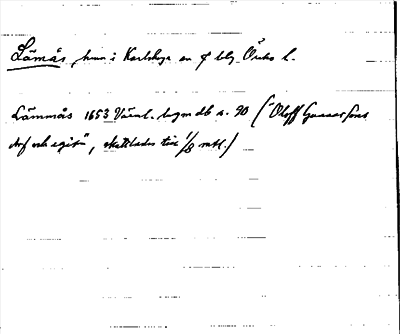 Lämås, hmn i Karlskoga sn o blg Örebro l.
Lämmås 1653 Värml. bygn db s. 90 ("Oloff Gunnarsons
Arf och egit", skattlades till 1/8 mtl.)